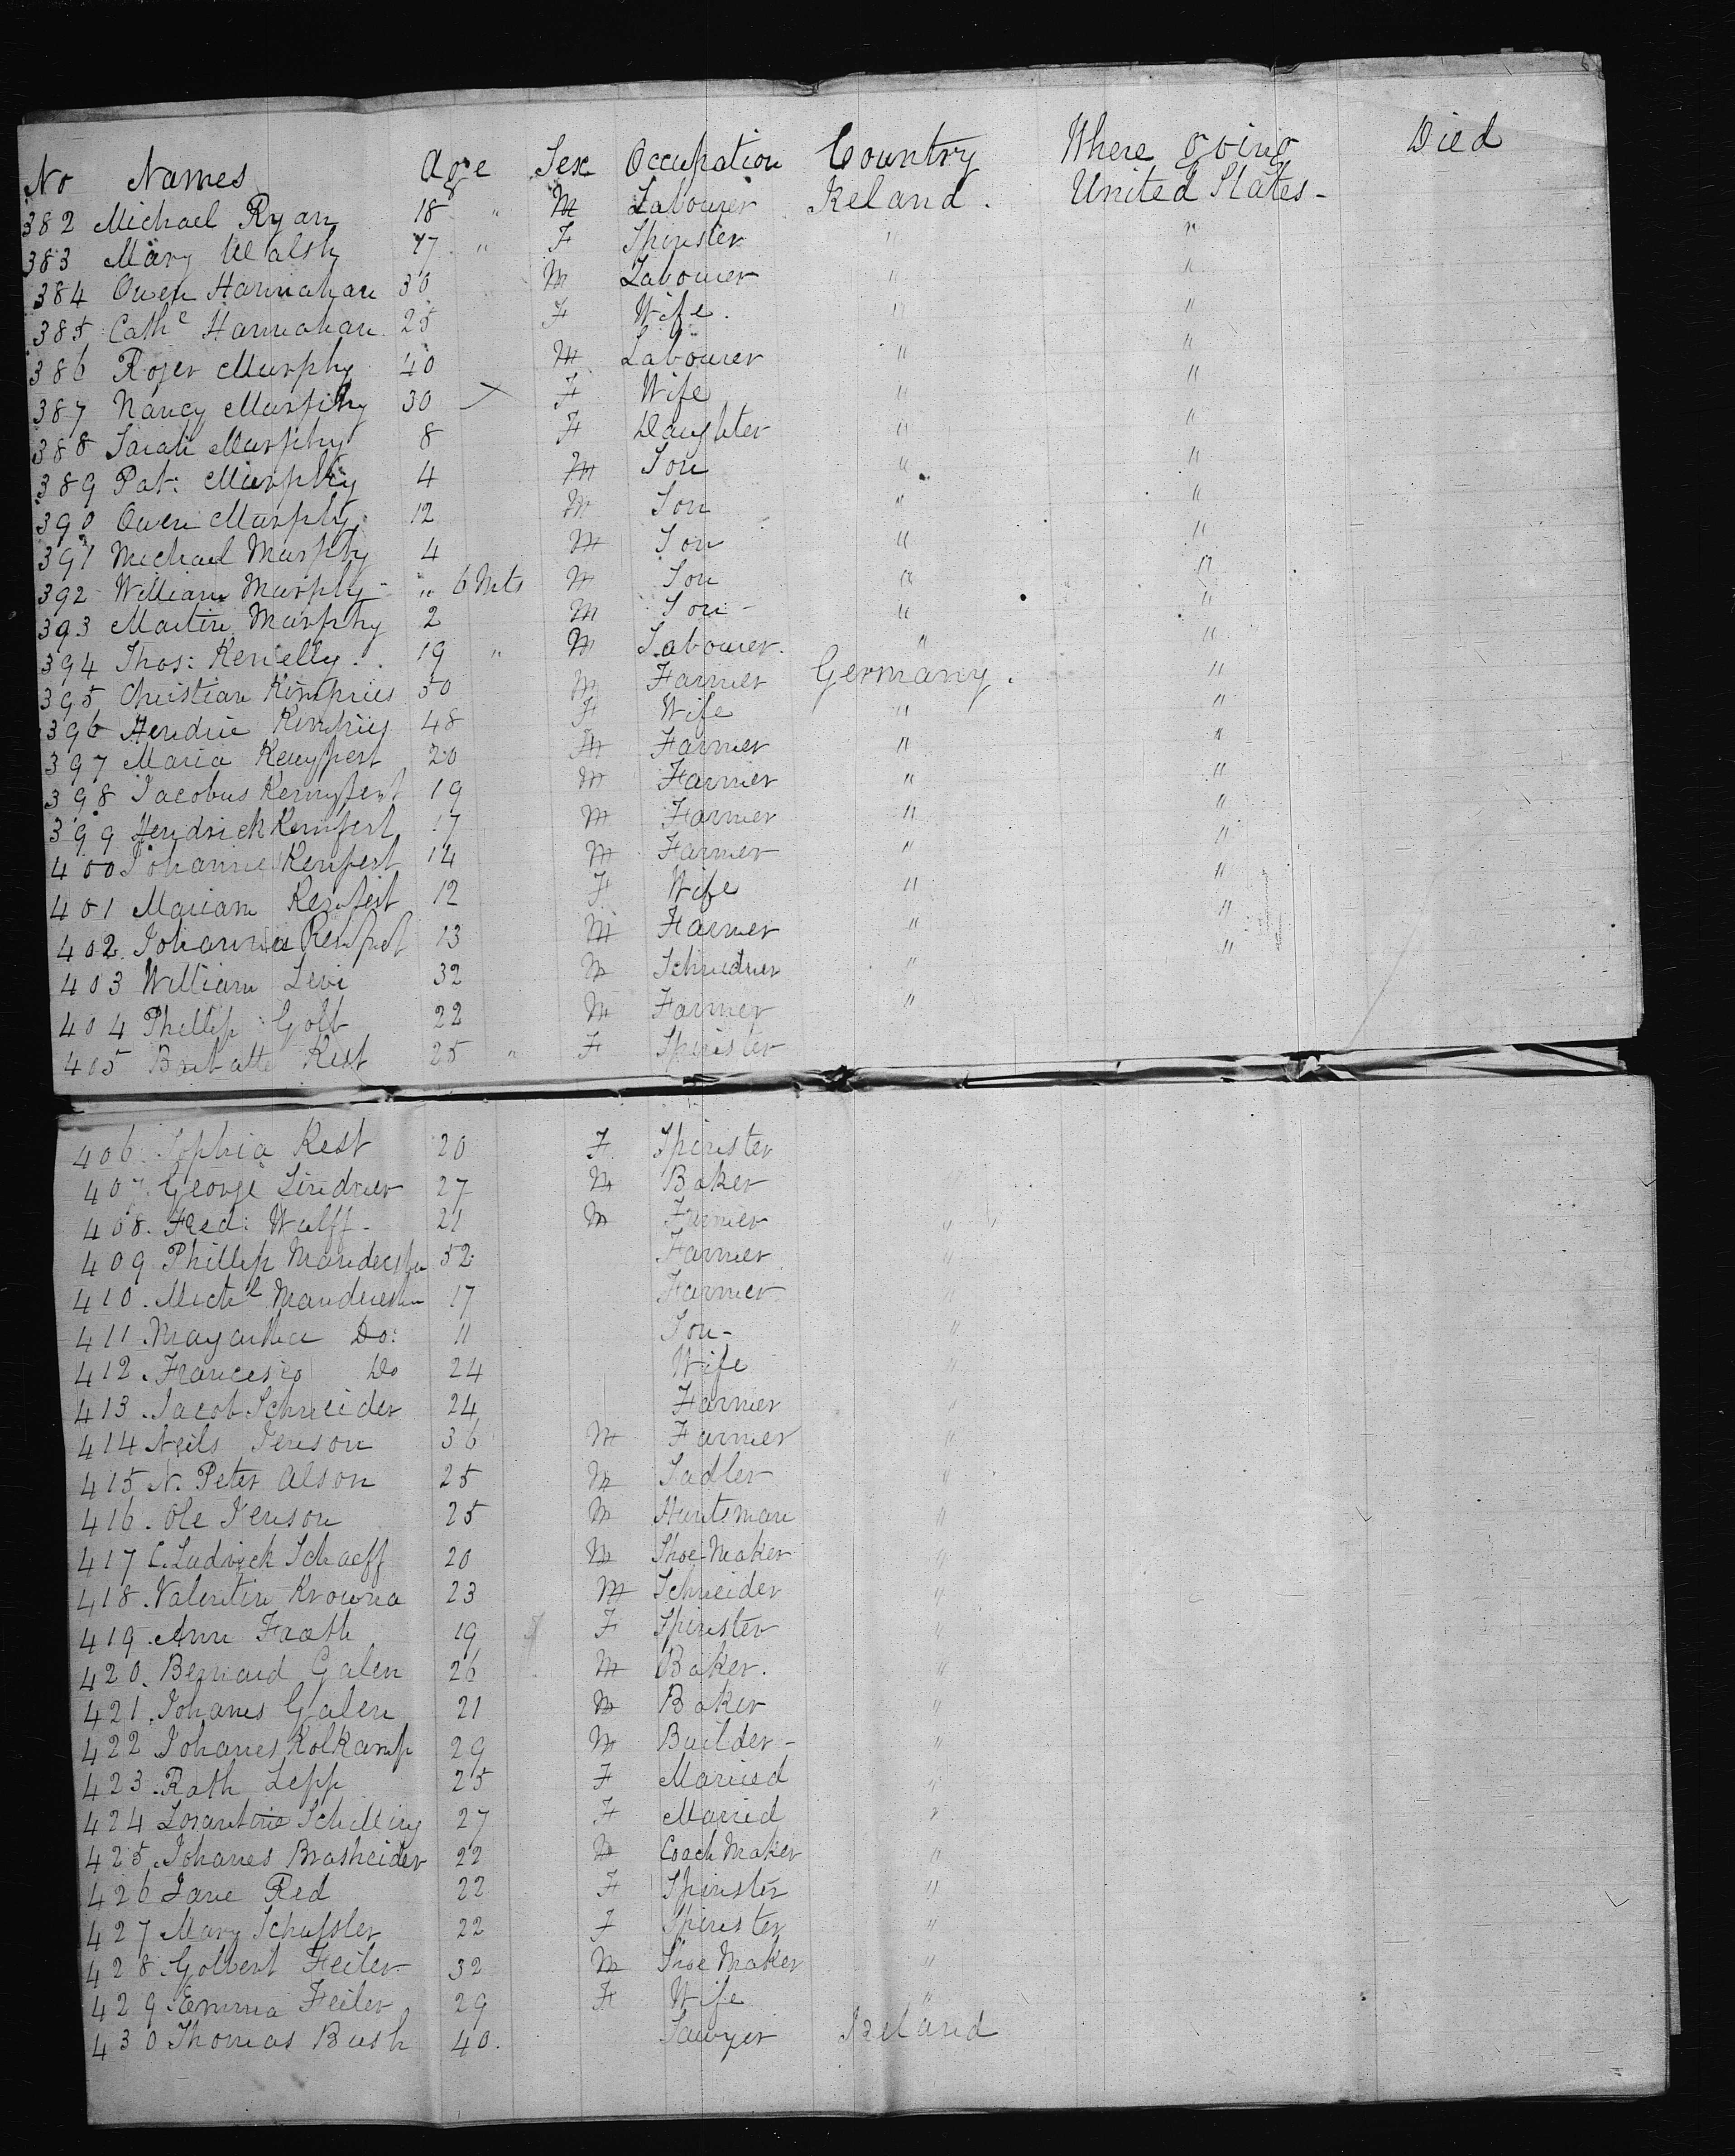 No Names Age Sex Occupation Country Where going Died
382 Michael Ryan 18 " M Labourer Ireland. United States-
383 Mary Walsh 17 " F Spinster " "
384 Owen Hannahan 30 M Labourer " "
385 Cathe Hannahan 25 F Wife. " "
386 Roger Murphy 40 M Labourer " "
387 Nancy Murphy 30 F Wife " "
388 Sarah Murphy 8 F Daughter " "
389 Pat: Murphy 4 M Son " "
390 Owen Murphy 12 M Son " "
391 Michael Murphy 4 M Son " "
392 William Murphy " 6 Mts M Son " "
393 Martin Murphy 2 M Son - " "
394 Thos: Kennelly. 19 " M Labourer. " "
395 Christian 50 M Farmer Germany. "
396 48 F Wife " "
397 Maria 20 M Farmer " "
398 Jacobus 19 M Farmer " "
399 Hendrick Kemfert 17 M Farmer " "
400 Johannes Kenfert 14 M Farmer " "
401 Mariam Kenfert 12 F Wife " "
402 Johanna 13 M Farmer " "
403 William Levi 32 M "
404 Phillip Golb 22 M Farmer "
405 Kest 25 " F Spinster
406. Sophia Kest 20 F Spinster
407. George Lindner 27 M Baker
408. Fred: Wulff - 21 M "
409 Phillip 52 Farmer "
410. Michl 17 Farmer "
411. Do: 11 Son - "
412. Francesco Do 24 Wife "
413. Jacob Schneider 24 Farmer "
414 Neils Jenson 36 M Farmer "
415 N. Peter Alson 25 M Sadler "
416. Ole Jenson 25 M Huntsman "
417 C. Ludvick Schaeff 20 M Shoe Maker "
418. Valentin Krowna 23 M Schneider "
419. Ann Frath 19 F Spinster "
420. Bernard Galen 26 M Baker. "
421. Johanes Galen 21 M Baker "
422 Johanes Kolkamp 29 M Builder - "
423. Rath Lepp 25 F Married "
424 Schilling 27 F Married "
425. Johanes Brasheider 22 M Coach Maker "
426 Jane Red 22 F Spinster "
427 Mary Schussler 22 F Spinster "
428. Golbert Feiler 32 M Shoe Maker "
429. Emma Feiler 29 F Wife "
430 Thomas Bush 40. Sawyer Ireland